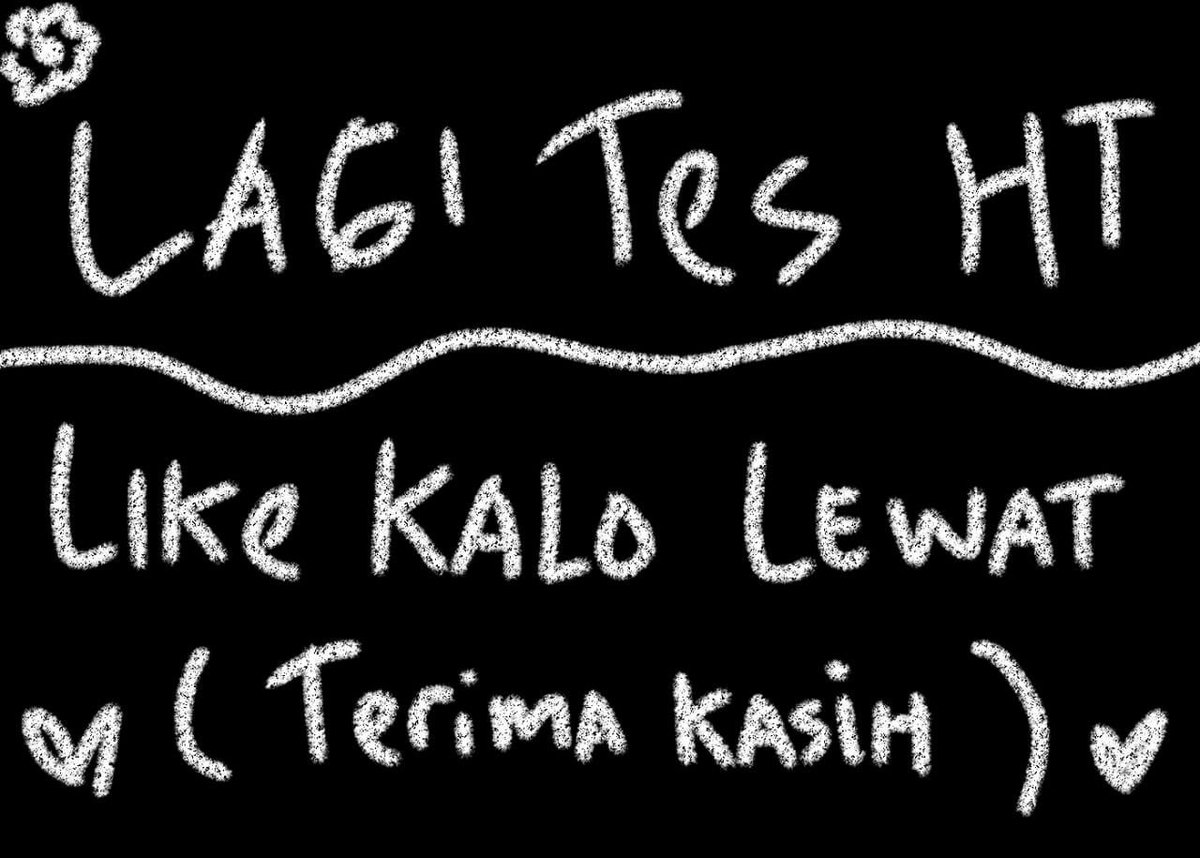 LAGI Tes HT
LIKe KALO LEWAT
(TeriMA KASiH)